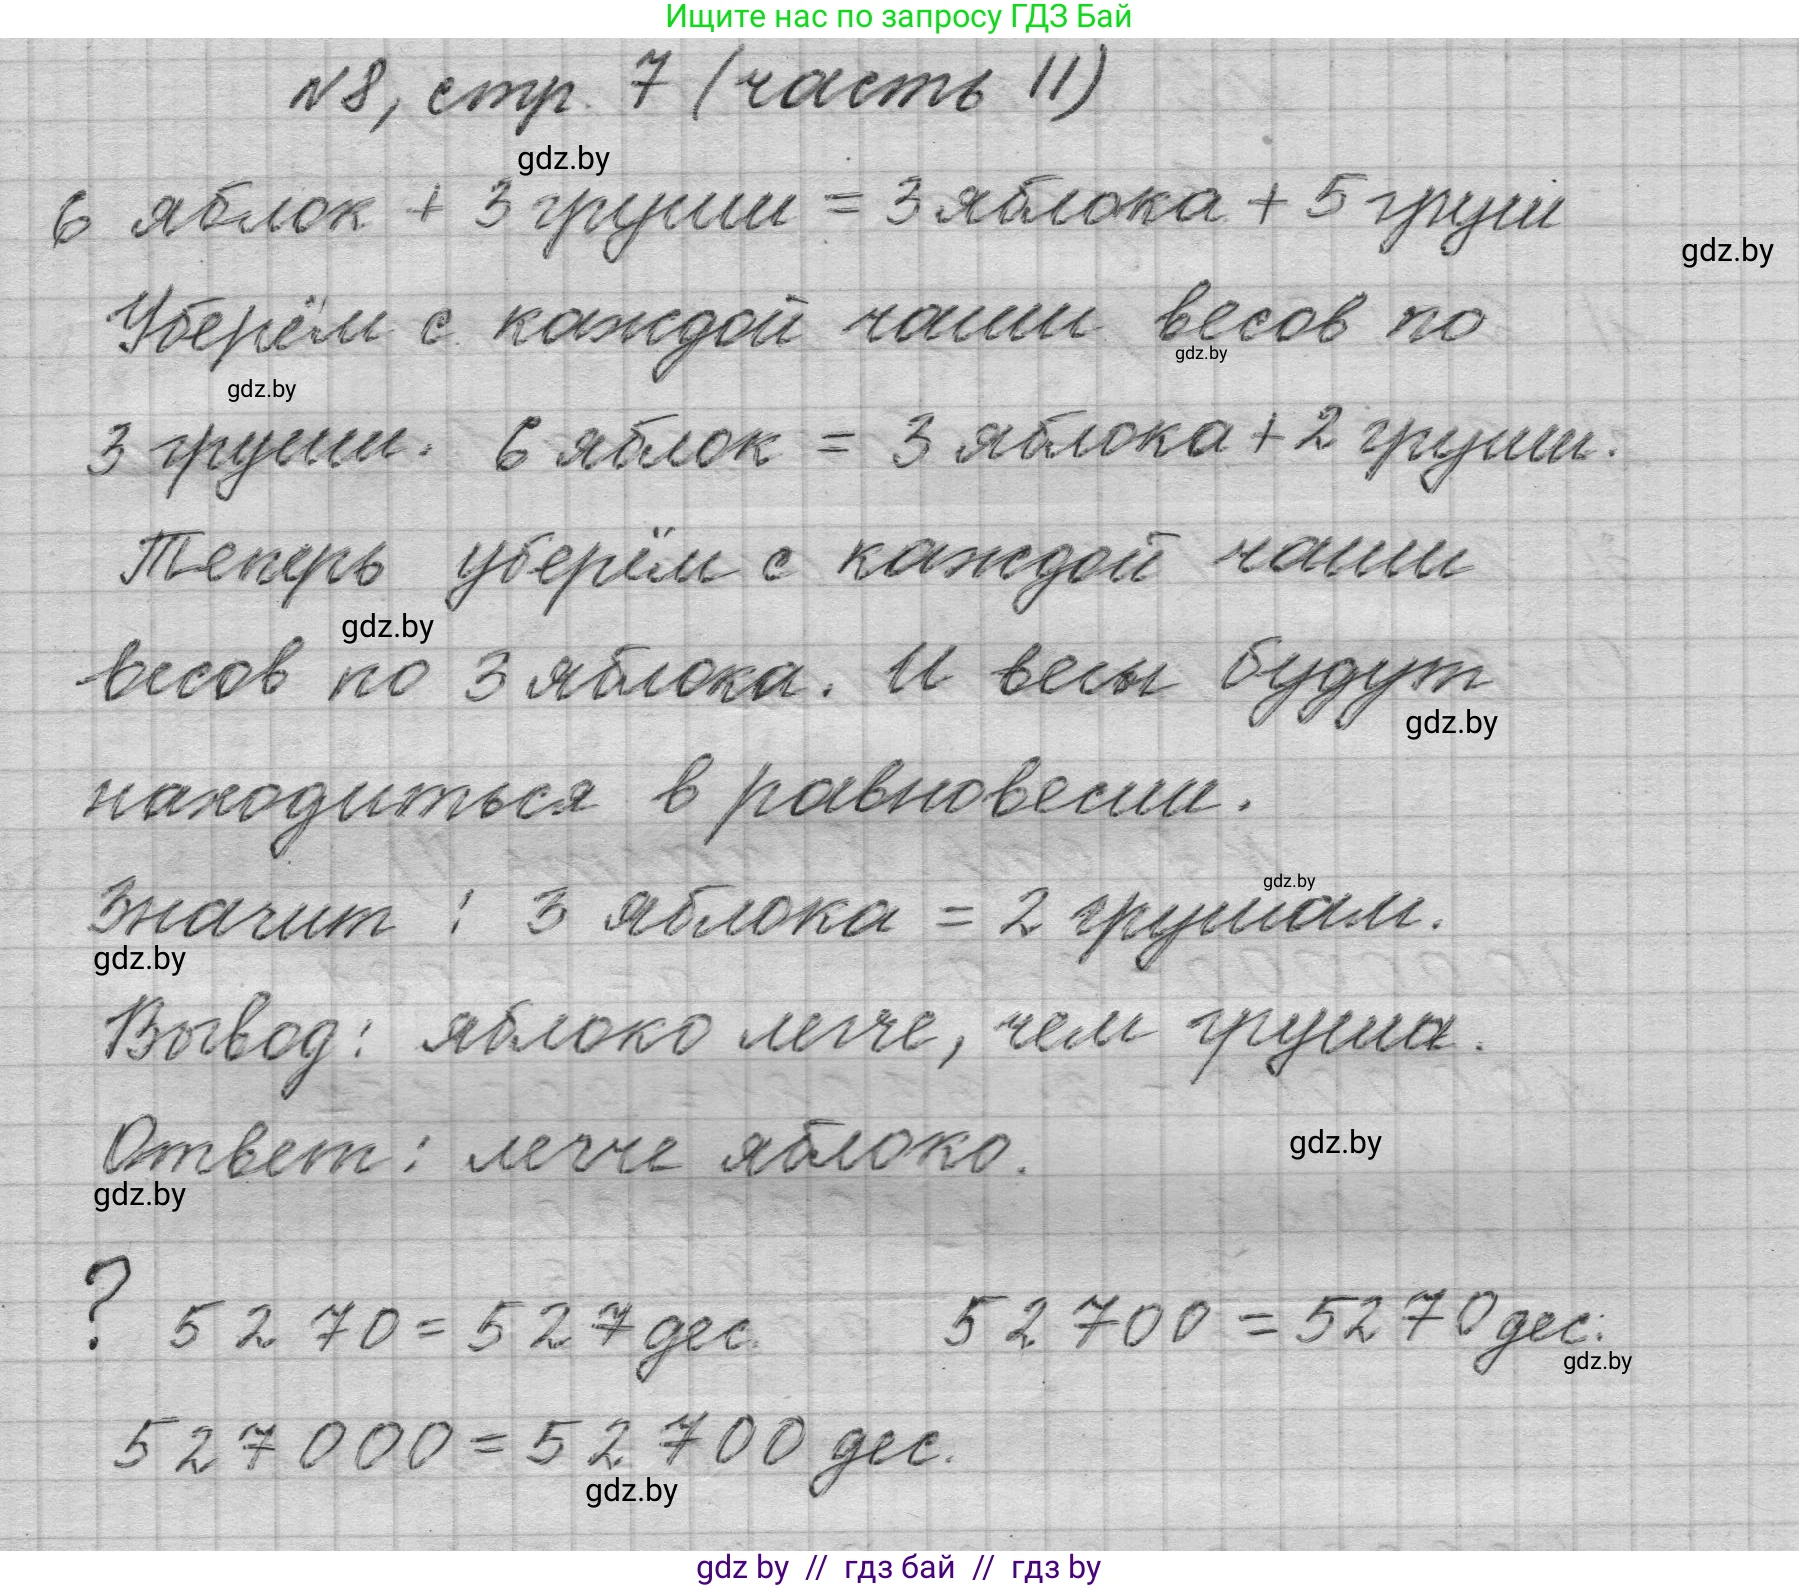 Ищите нас по запросу ГДЗ Бай
№8, стр. 7 (часть II)
gdz.by
6 яблок + 3 груши = 3 яблока + 5 груш
gdz.by
Уберём с каждой чаши весов по
gdz.by
gdz.by
3 груши. 6 яблок = 3 яблока + 2 груши.
Теперь уберём с каждой чаши
gdz.by
весов по 3 яблока. И весы будут
gdz.by
находиться в равновесии.
gdz.by
Значит : 3 яблока = 2 грушам.
gdz.by
Вывод: яблоко легче, чем груша.
Ответ: легче яблоко.
gdz.by
gdz.by
? 5270 = 527 дес. 52700 = 5270 дес.
gdz.by
527000 = 52700 дес.
gdz.by
gdz by // гдз бай // гдз by